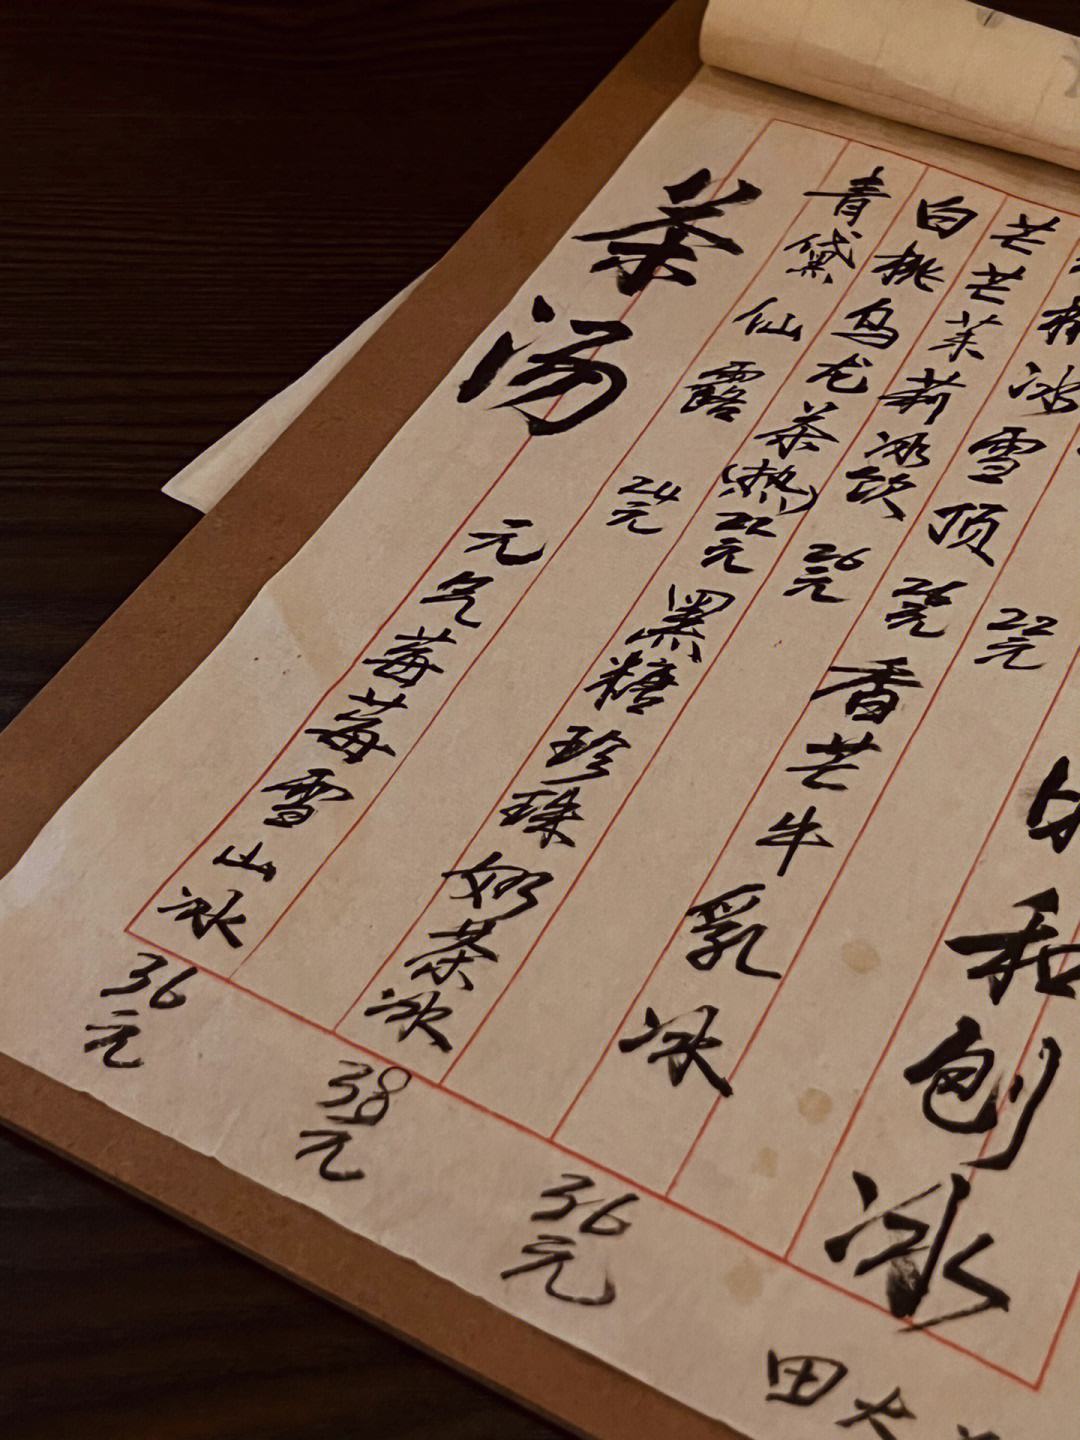 22元
冰雪顶 26元
芒芒茉莉冰饮 26元
白桃乌龙茶(热) 22元
青黛仙露 24元
茶汤
和刨冰
香芒牛乳冰 36元
黑糖珍珠奶茶冰 38元
元气莓莓雪山冰 36元
田大